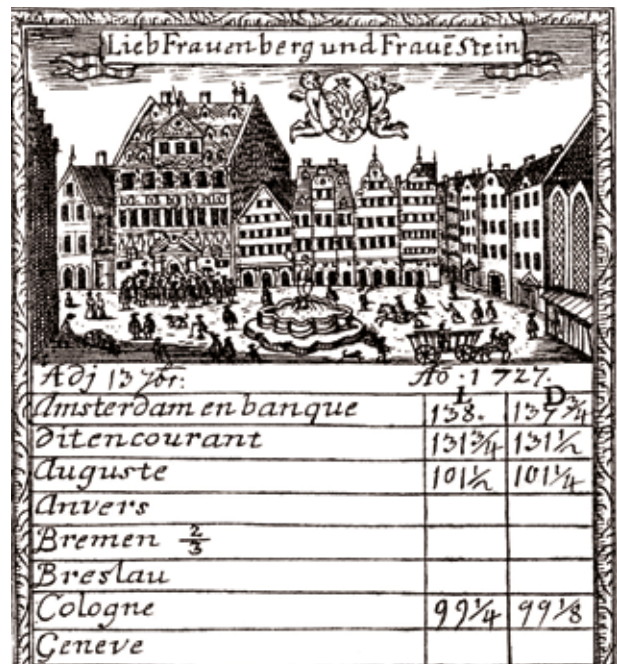 Lieb Frauenberg und Frauē Stein
Adj 13 7br: Ao · 1727.
L D
Amsterdam en banque 138. 137 3/4
Dit en courant 131 3/4 131 1/2
Auguste 101 1/2 101 1/4
Anvers
Bremen 2/3
Breslau
Cologne 99 1/4 99 1/8
Geneve